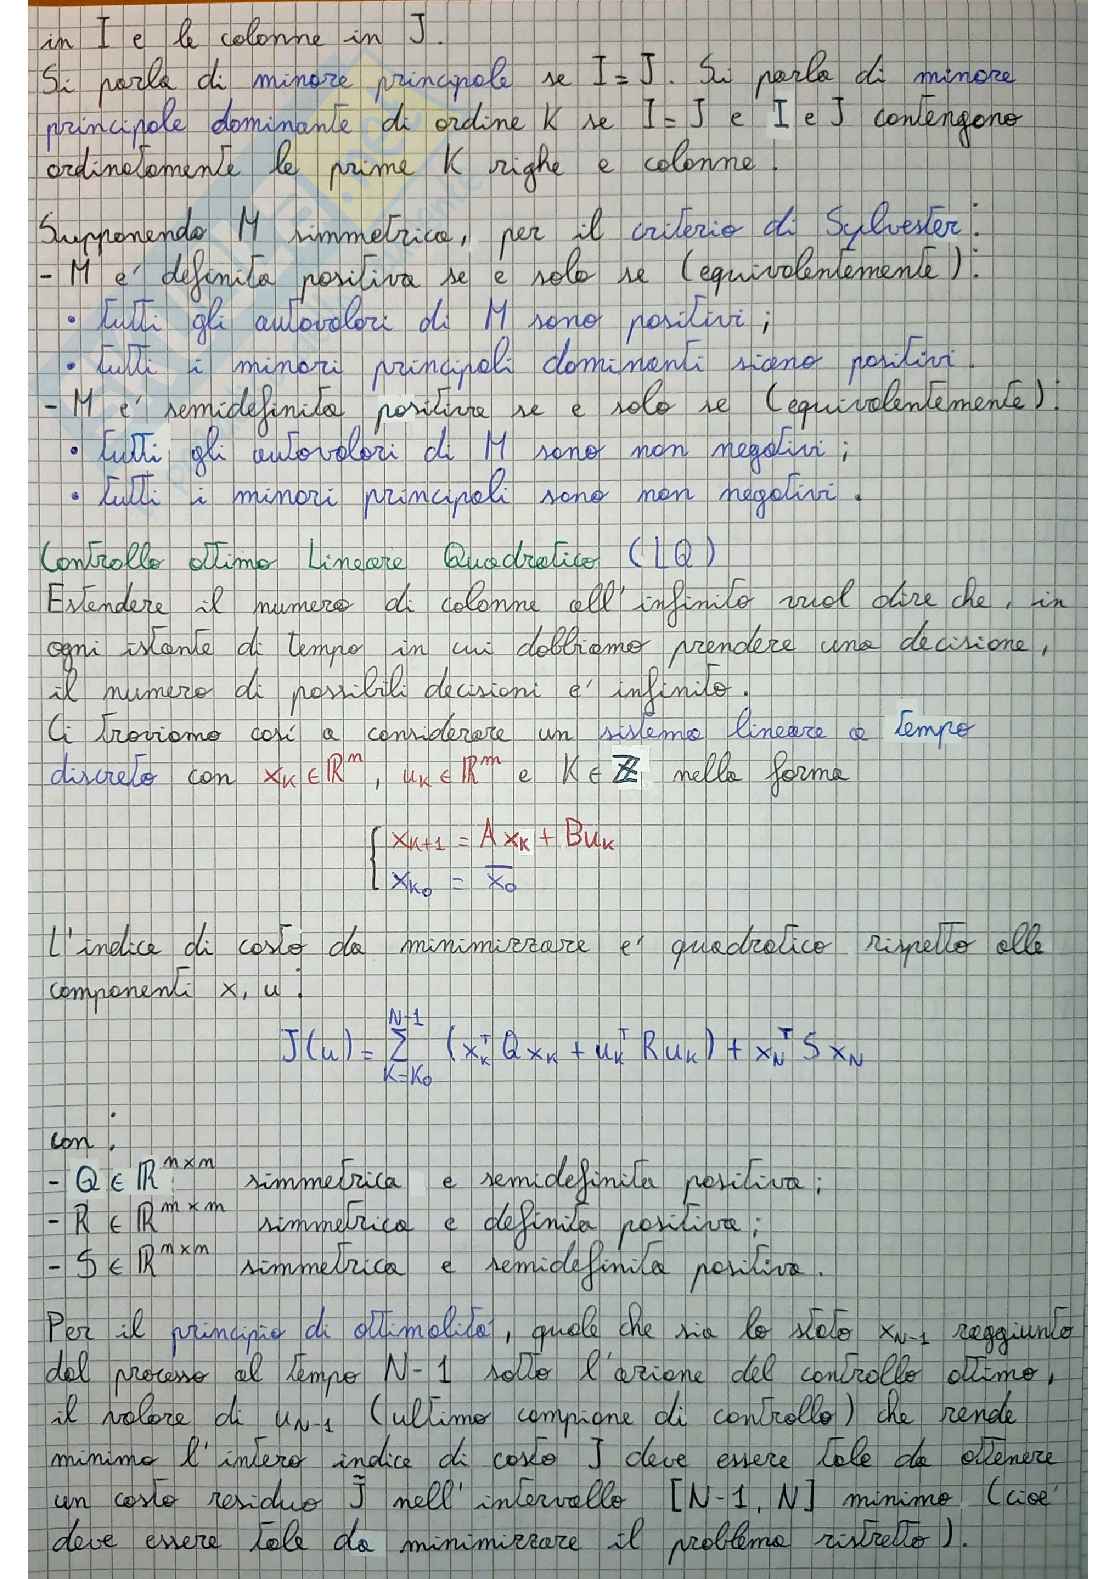 in I e le colonne in J.
Si parla di minore principale se I = J. Si parla di minore
principale dominante di ordine K se I = J e I e J contengono
ordinatamente le prime K righe e colonne.
Supponendo M simmetrica, per il criterio di Sylvester:
- M e' definita positiva se e solo se (equivalentemente):
• tutti gli autovalori di M sono positivi;
• tutti i minori principali dominanti siano positivi.
- M e' semidefinita positiva se e solo se (equivalentemente):
• tutti gli autovalori di M sono non negativi;
• tutti i minori principali sono non negativi.
Controllo ottimo Lineare Quadratico (LQ)
Estendere il numero di colonne all'infinito vuol dire che, in
ogni istante di tempo in cui dobbiamo prendere una decisione,
il numero di possibili decisioni e' infinito.
Ci troviamo così a considerare un sistema lineare a tempo
discreto con x_K ∈ ℝ^n, u_K ∈ ℝ^m e K ∈ ℤ nella forma
{ x_{K+1} = A x_K + B u_K
x_{K_0} = \overline{x_0}
L'indice di costo da minimizzare e' quadratico rispetto alle
componenti x, u:
J(u) = \sum_{K=K_0}^{N-1} (x_K^T Q x_K + u_K^T R u_K) + x_N^T S x_N
con:
- Q ∈ ℝ^{n×n} simmetrica e semidefinita positiva;
- R ∈ ℝ^{m×m} simmetrica e definita positiva;
- S ∈ ℝ^{n×n} simmetrica e semidefinita positiva.
Per il principio di ottimalità, quale che sia lo stato x_{N-1} raggiunto
dal processo al tempo N-1 sotto l'azione del controllo ottimo,
il valore di u_{N-1} (ultimo campione di controllo) che rende
minimo l'intero indice di costo J deve essere tale da ottenere
un costo residuo J̃ nell'intervallo [N-1, N] minimo (cioe'
deve essere tale da minimizzare il problema ristretto).